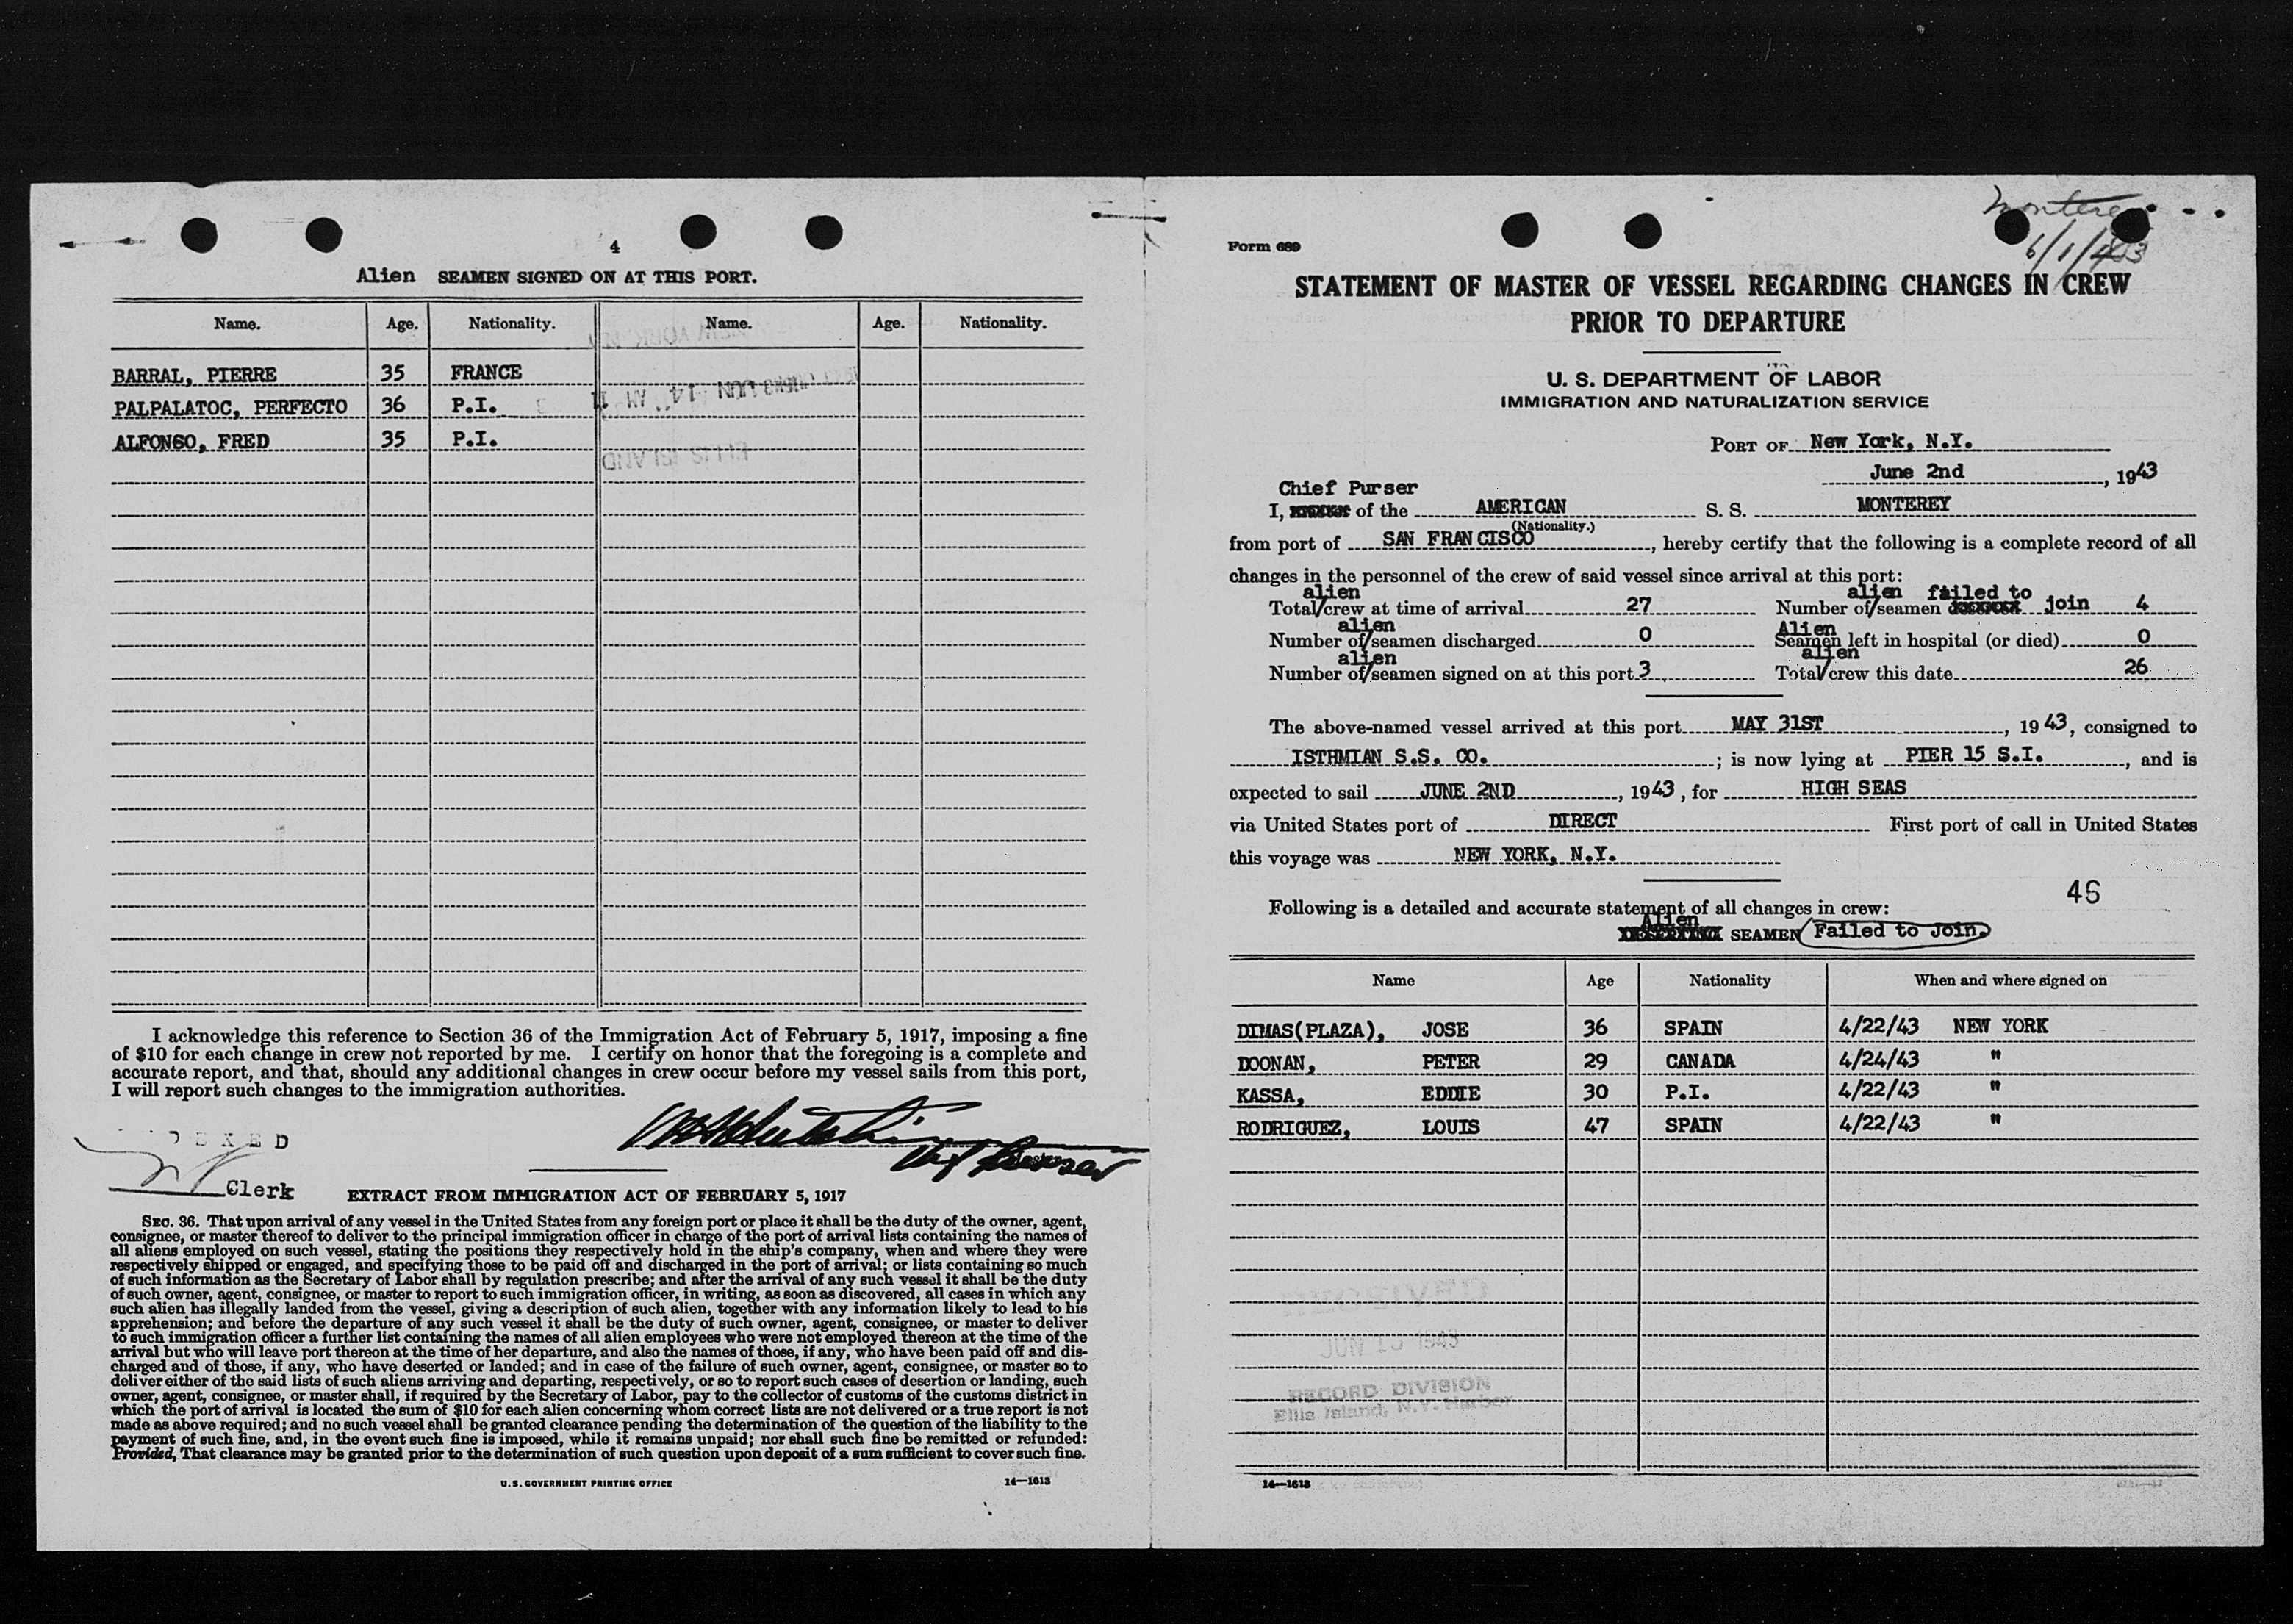 4
Alien SEAMEN SIGNED ON AT THIS PORT.
Name. Age. Nationality. Name. Age. Nationality.
BARRAL, PIERRE 35 FRANCE
PALPALATOC, PERFECTO 36 P.I.
ALFONSO, FRED 35 P.I.
ELLIS ISLAND
I acknowledge this reference to Section 36 of the Immigration Act of February 5, 1917, imposing a fine
of $10 for each change in crew not reported by me. I certify on honor that the foregoing is a complete and
accurate report, and that, should any additional changes in crew occur before my vessel sails from this port,
I will report such changes to the immigration authorities.
Clerk
EXTRACT FROM IMMIGRATION ACT OF FEBRUARY 5, 1917
SEC. 36. That upon arrival of any vessel in the United States from any foreign port or place it shall be the duty of the owner, agent,
consignee, or master thereof to deliver to the principal immigration officer in charge of the port of arrival lists containing the names of
all aliens employed on such vessel, stating the positions they respectively hold in the ship's company, when and where they were
respectively shipped or engaged, and specifying those to be paid off and discharged in the port of arrival; or lists containing so much
of such information as the Secretary of Labor shall by regulation prescribe; and after the arrival of any such vessel it shall be the duty
of such owner, agent, consignee, or master to report to such immigration officer, in writing, as soon as discovered, all cases in which any
such alien has illegally landed from the vessel, giving a description of such alien, together with any information likely to lead to his
apprehension; and before the departure of any such vessel it shall be the duty of such owner, agent, consignee, or master to deliver
to such immigration officer a further list containing the names of all alien employees who were not employed thereon at the time of the
arrival but who will leave port thereon at the time of her departure, and also the names of those, if any, who have been paid off and dis-
charged and of those, if any, who have deserted or landed; and in case of the failure of such owner, agent, consignee, or master so to
deliver either of the said lists of such aliens arriving and departing, respectively, or so to report such cases of desertion or landing, such
owner, agent, consignee, or master shall, if required by the Secretary of Labor, pay to the collector of customs of the customs district in
which the port of arrival is located the sum of $10 for each alien concerning whom correct lists are not delivered or a true report is not
made as above required; and no such vessel shall be granted clearance pending the determination of the question of the liability to the
payment of such fine, and, in the event such fine is imposed, while it remains unpaid; nor shall such fine be remitted or refunded:
Provided, That clearance may be granted prior to the determination of such question upon deposit of a sum sufficient to cover such fine.
U. S. GOVERNMENT PRINTING OFFICE 14—1613
6/1/43
Form 689
STATEMENT OF MASTER OF VESSEL REGARDING CHANGES IN CREW
PRIOR TO DEPARTURE
U. S. DEPARTMENT OF LABOR
IMMIGRATION AND NATURALIZATION SERVICE
PORT OF New York, N.Y.
June 2nd, 1943
Chief Purser
I, of the AMERICAN S. S. MONTEREY
(Nationality.)
from port of SAN FRANCISCO, hereby certify that the following is a complete record of all
changes in the personnel of the crew of said vessel since arrival at this port:
alien alien failed to
Total/crew at time of arrival 27 Number of/seamen join 4
alien Alien
Number of/seamen discharged 0 Seamen left in hospital (or died) 0
alien alien
Number of/seamen signed on at this port 3 Total/crew this date 26
The above-named vessel arrived at this port MAY 31ST, 1943, consigned to
ISTHMIAN S.S. CO.; is now lying at PIER 15 S.I., and is
expected to sail JUNE 2ND, 1943, for HIGH SEAS
via United States port of DIRECT First port of call in United States
this voyage was NEW YORK, N.Y.
46
Following is a detailed and accurate statement of all changes in crew:
Alien
SEAMEN Failed to Join.
Name Age Nationality When and where signed on
DIMAS(PLAZA), JOSE 36 SPAIN 4/22/43 NEW YORK
DOONAN, PETER 29 CANADA 4/24/43 "
KASSA, EDDIE 30 P.I. 4/22/43 "
RODRIGUEZ, LOUIS 47 SPAIN 4/22/43 "
RECORD DIVISION
Ellis Island, N.Y. Harbor
14—1613